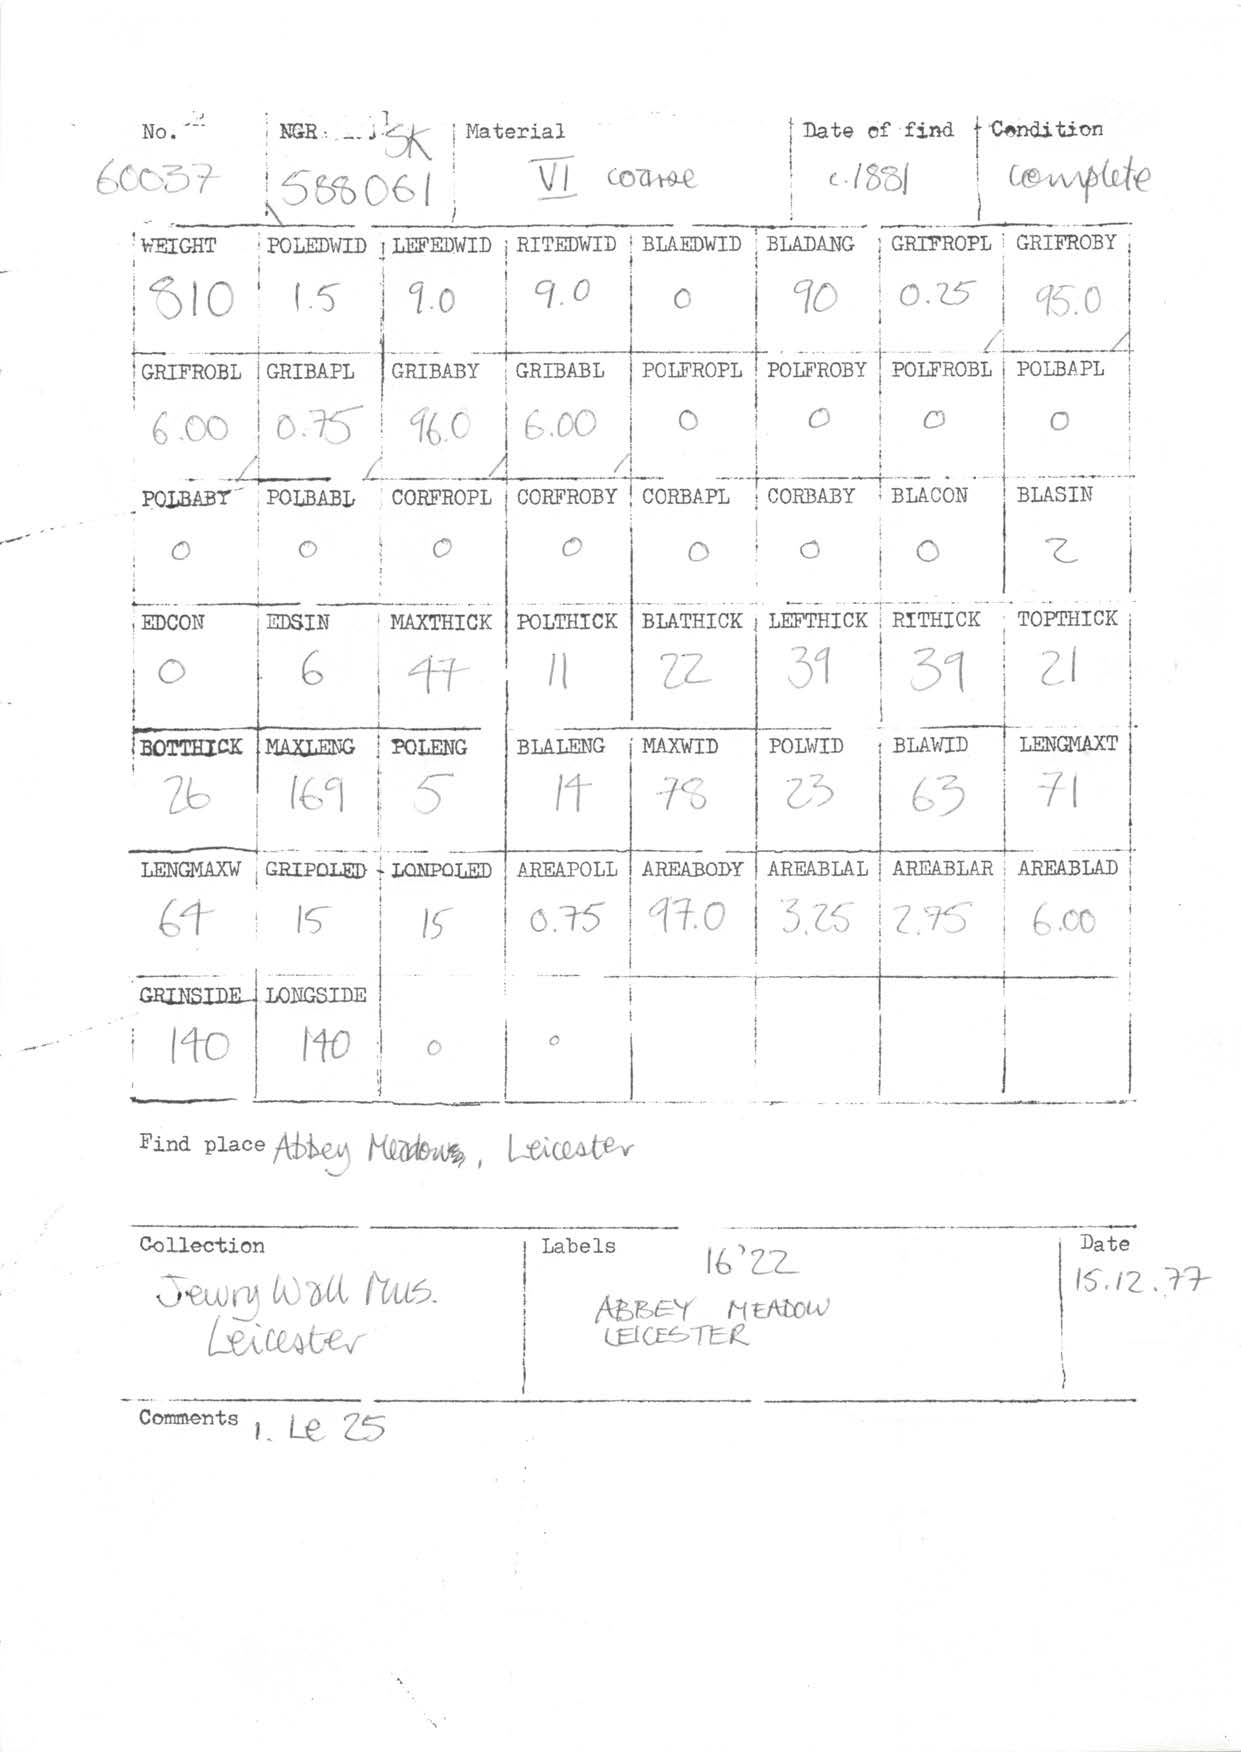 No. NGR SK Material Date of find Condition
60037 588061 VI coarse c.1881 complete
WEIGHT POLEDWID LEFEDWID RITEDWID BLAEDWID BLADANG GRIFROPL GRIFROBY
810 1.5 9.0 9.0 0 90 0.25 95.0
GRIFROBL GRIBAPL GRIBABY GRIBABL POLFROPL POLFROBY POLFROBL POLBAPL
6.00 0.75 96.0 6.00 0 0 0 0
POLBABY POLBABL CORFROPL CORFROBY CORBAPL CORBABY BLACON BLASIN
0 0 0 0 0 0 0 2
EDCON EDSIN MAXTHICK POLTHICK BLATHICK LEFTHICK RITHICK TOPTHICK
0 6 47 11 22 39 39 21
BOTTHICK MAXLENG POLENG BLALENG MAXWID POLWID BLAWID LENGMAXT
26 169 5 14 78 23 63 71
LENGMAXW GRIPOLED LONPOLED AREAPOLL AREABODY AREABLAL AREABLAR AREABLAD
64 15 15 0.75 97.0 3.25 2.75 6.00
GRINSIDE LONGSIDE
140 140 0 0
Find place Abbey Meadows, Leicester
Collection Labels Date
16'22
Jewry Wall Mus. 15.12.77
ABBEY MEADOW
Leicester LEICESTER
Comments 1. Le 25